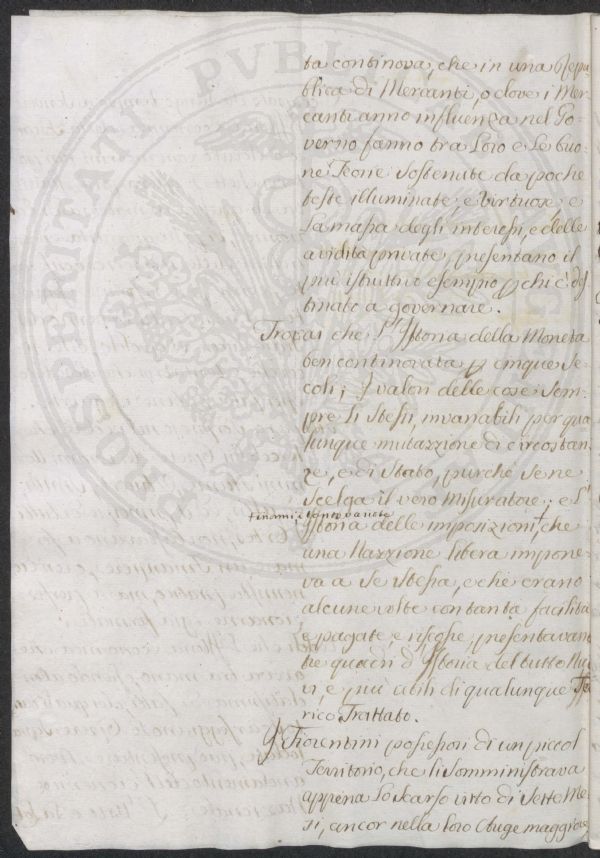 ta continova, che in una Repu=
blica di Mercanti, o dove i Mer=
canti anno influenza nel Go=
verno fanno tra Loro e Le buo=
ne Teorie sostenute da poche
teste illuminate, e virtuose, e
La massa degli interessi, e delle
avidità private, presentano il
più istruttivo esempio p chi è des
tinato a governare.
Trovai che L'Istoria della Moneta
ben continovata p cinque Se=
coli; I valori delle cose sem=
pre Li stessi, invariabili per qua
lunque mutazzione di circostan
ze, e di Stato, purché se ne
scelga il vero Misuratore; e L'
Istoria delle imposizioni, che
una Nazzione libera impone=
va a se stessa, e che erano
alcune volte con tanta facilità
e pagate e risolte, presentavano
tre quadri d'Istoria del tutto Nuo
vi, e più utili di qualunque Teo
rico Trattato.
I Fiorentini possessori di un piccol
Territorio, che Li somministrava
appena Lo scarso vitto di Sette Me=
si, ancor nella Loro Auge maggiore
PROSPERITATI PUBLICAE